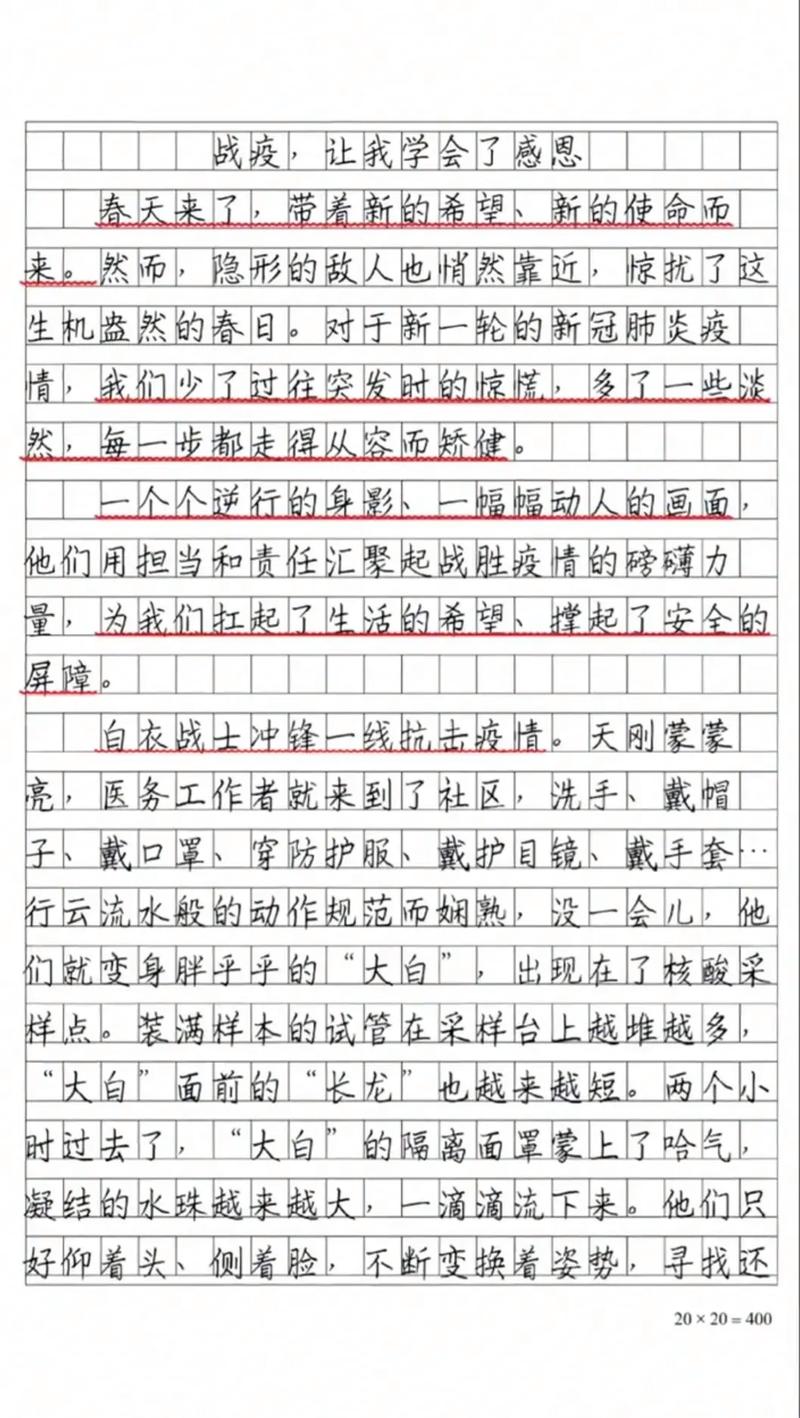 战疫，让我学会了感恩
春天来了，带着新的希望、新的使命而
来。然而，隐形的敌人也悄然靠近，惊扰了这
生机盎然的春日。对于新一轮的新冠肺炎疫
情，我们少了过往突发时的惊慌，多了一些淡
然，每一步都走得从容而矫健。
一个个逆行的身影、一幅幅动人的画面，
他们用担当和责任汇聚起战胜疫情的磅礴力
量，为我们扛起了生活的希望、撑起了安全的
屏障。
白衣战士冲锋一线抗击疫情。天刚蒙蒙
亮，医务工作者就来到了社区，洗手、戴帽
子、戴口罩、穿防护服、戴护目镜、戴手套…
行云流水般的动作规范而娴熟，没一会儿，他
们就变身胖乎乎的“大白”，出现在了核酸采
样点。装满样本的试管在采样台上越堆越多，
“大白”面前的“长龙”也越来越短。两个小
时过去了，“大白”的隔离面罩蒙上了哈气，
凝结的水珠越来越大，一滴滴流下来。他们只
好仰着头、侧着脸，不断变换着姿势，寻找还
20×20=400